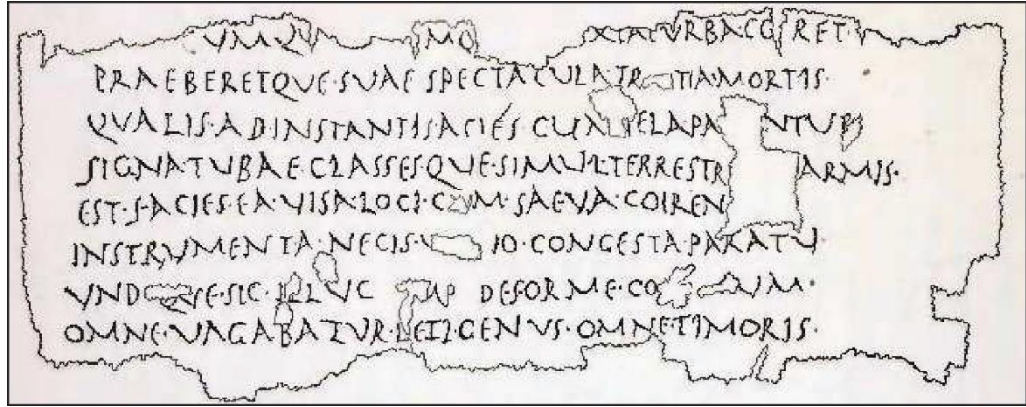 VMQV MO XIATVRBACG RET·
PRAEBERETQVE·SVAE SPECTACVLATR TIAMORTIS·
QVALIS·ADINSTANTIS·ACIÉS CVM ELAPA NTVR
SIGNATVBAE·CLASSESQVE·SIMVL·TERRESTR ARMIS·
EST·S·ACIES·EA·VISA·LOCI·C M·SAEVA·COIREN
INSTRVMENTA·NECIS·V IO·CONGESTA·PARATV·
VND VE·SIC·ILLVC AP DEFORME·CO VM·
OMNE·VAGABATVR·LETI·GENVS·OMNETIMORIS·